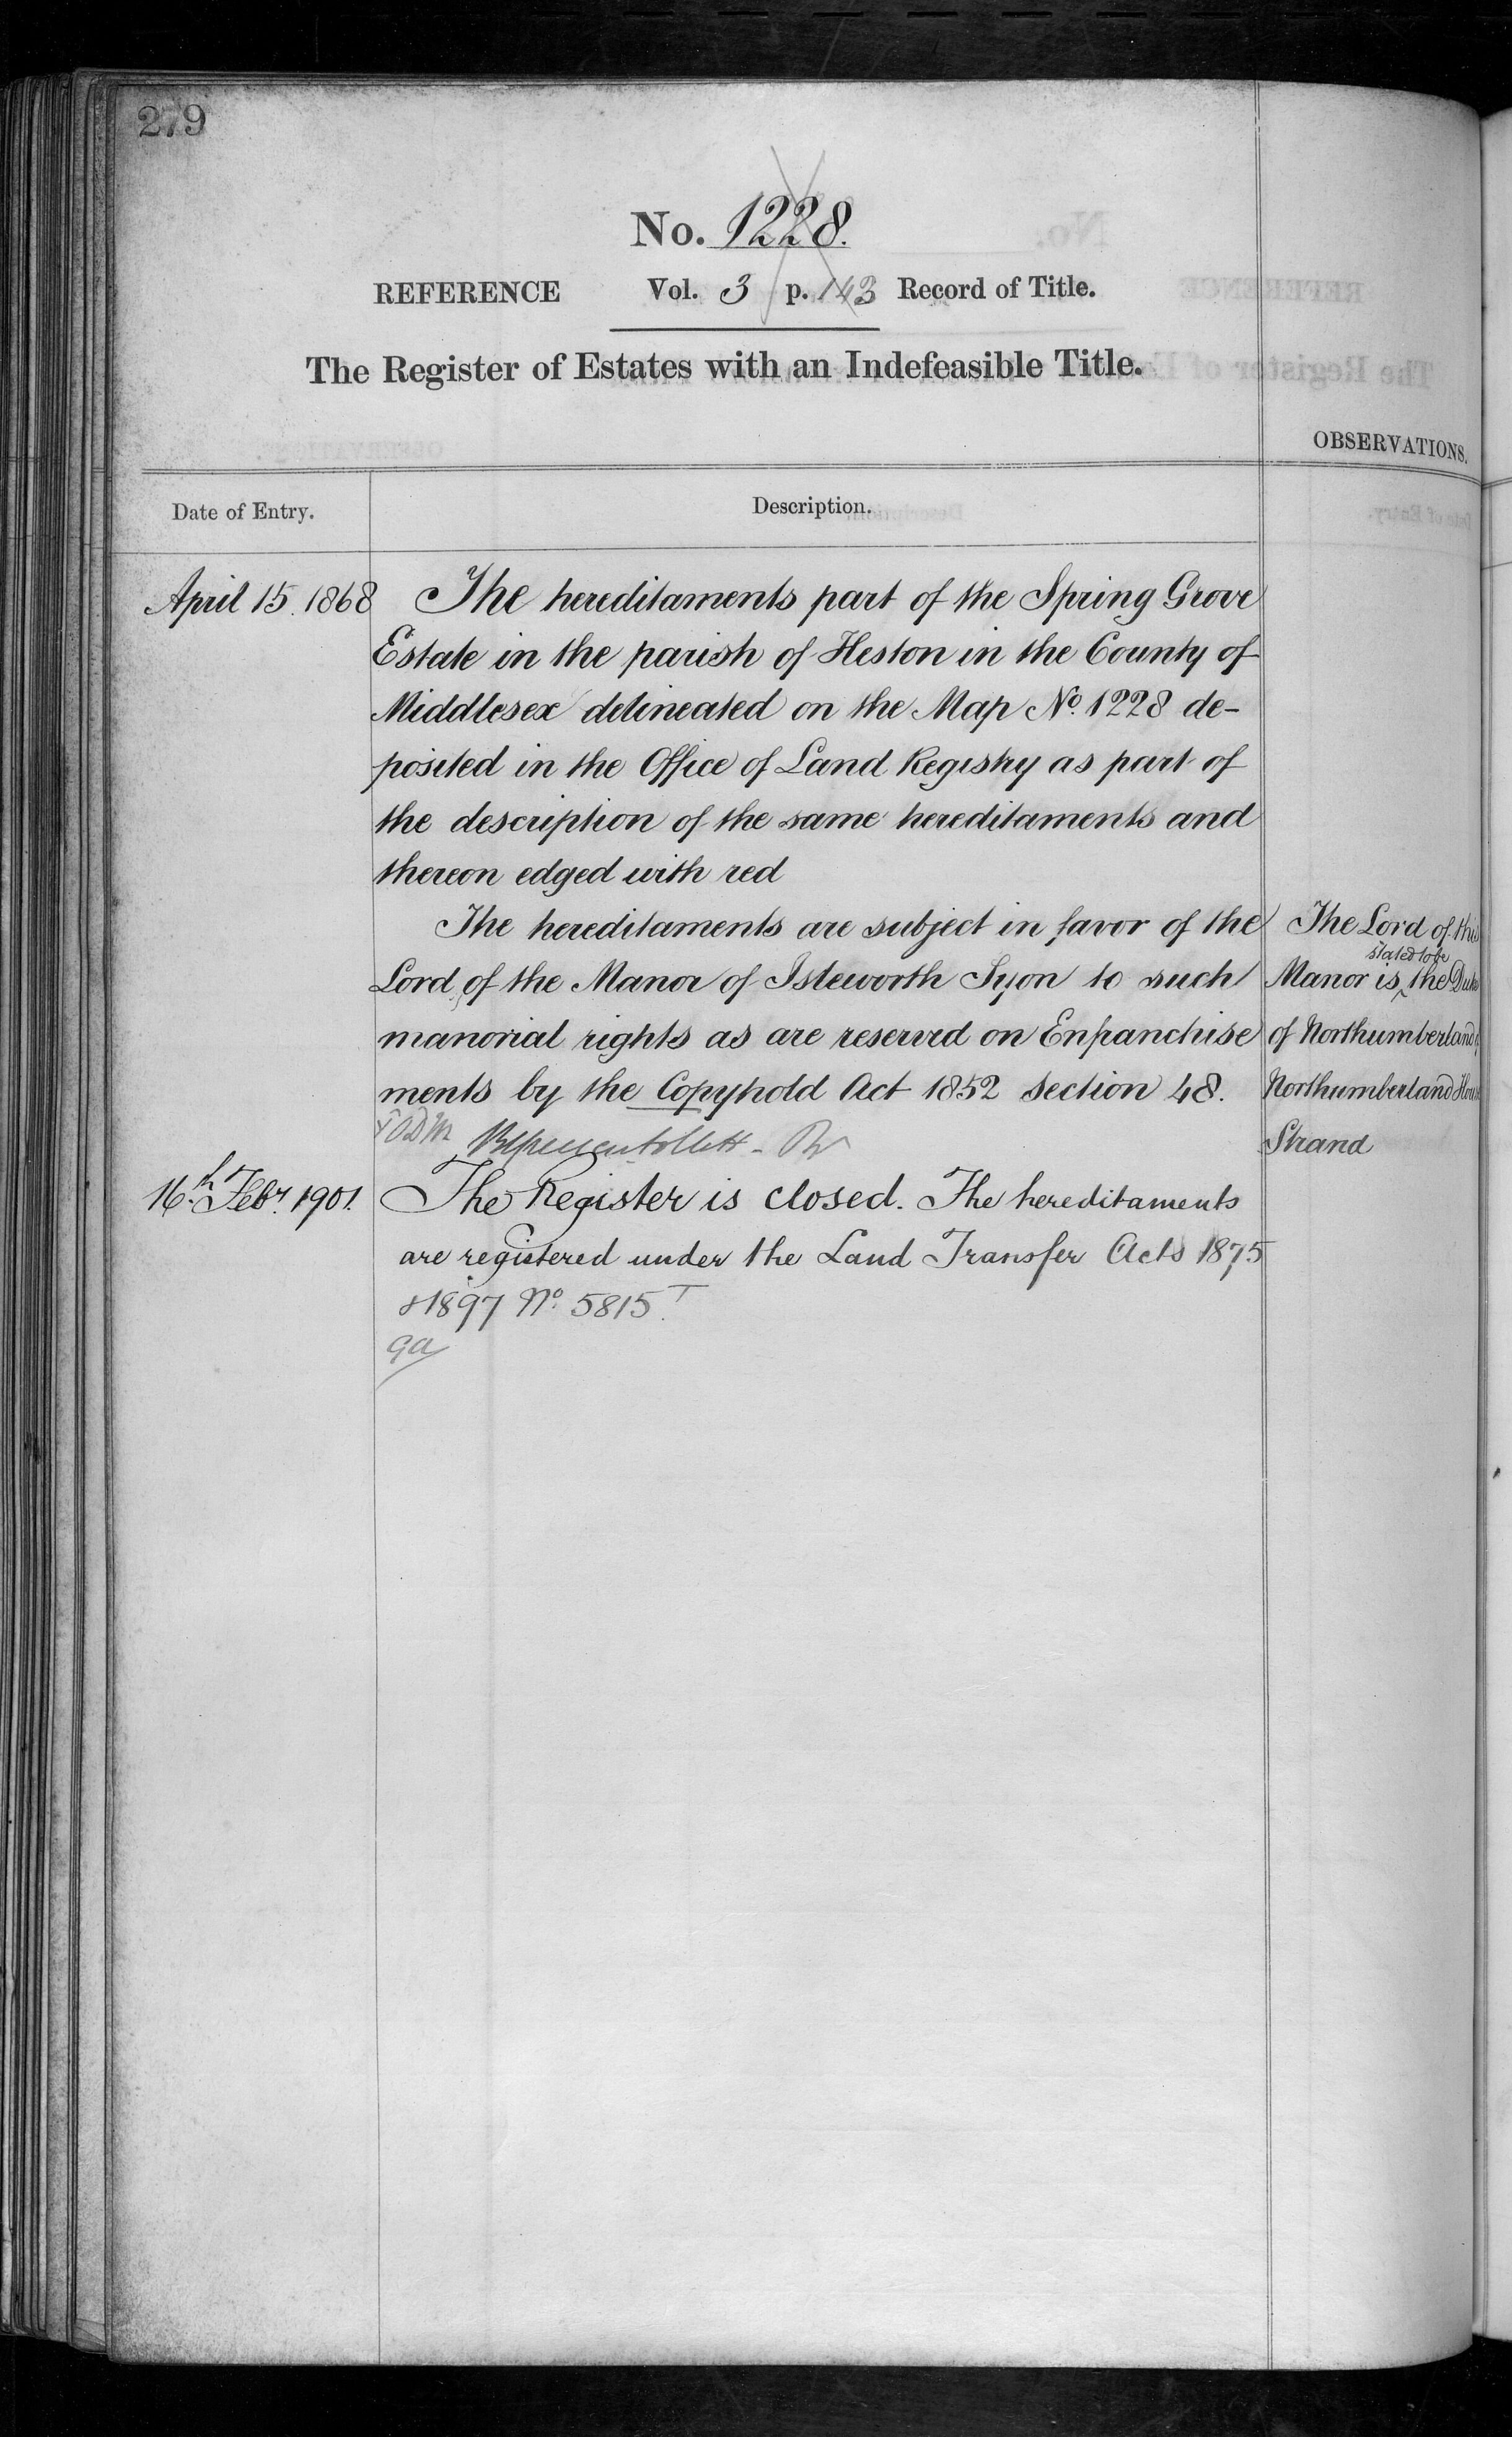 279
No. 1228.
REFERENCE Vol. 3 p. 143 Record of Title.
The Register of Estates with an Indefeasible Title.
OBSERVATIONS.
Date of Entry.
Description.
April 15. 1868
The hereditaments part of the Spring Grove
Estate in the parish of Heston in the County of
Middlesex delineated on the Map No. 1228 de-
posited in the Office of Land Registry as part of
the description of the same hereditaments and
thereon edged with red
The hereditaments are subject in favor of the
Lord of the Manor of Isleworth Syon to such
manorial rights as are reserved on Enfranchise
ments by the Copyhold Act 1852 section 48.
The Lord of this
Manor is stated to be the Duke
of Northumberland
Northumberland House
Strand
16th Febr. 1901.
The Register is closed. The hereditaments
are registered under the Land Transfer Acts 1875
& 1897 No. 5815.